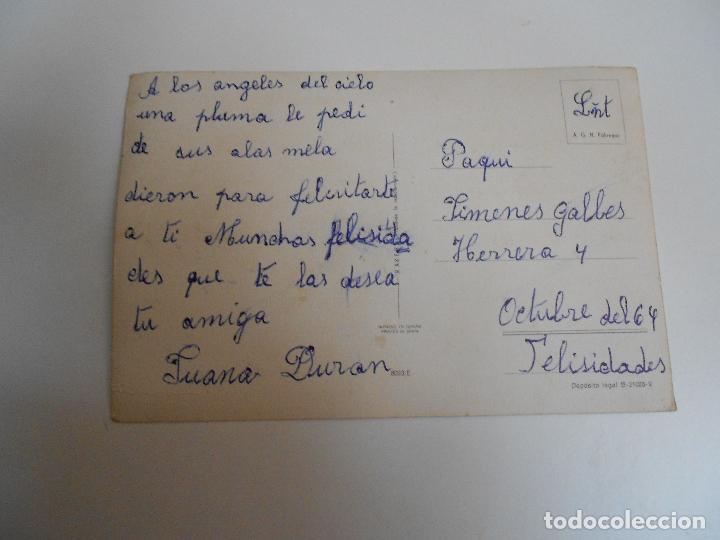 A los angeles del cielo
una pluma le pedi
de sus alas mela
dieron para felicitarte
a ti Munchas felisida
des que te las desea
tu amiga
Juana Duran
A. G. N. Fábregas
Paqui
Jimenes Galbes
Herrera 4
Octubre del 64
Felisidades
IMPRESO EN ESPAÑA
PRINTED IN SPAIN
8093/E
todocoleccion.net